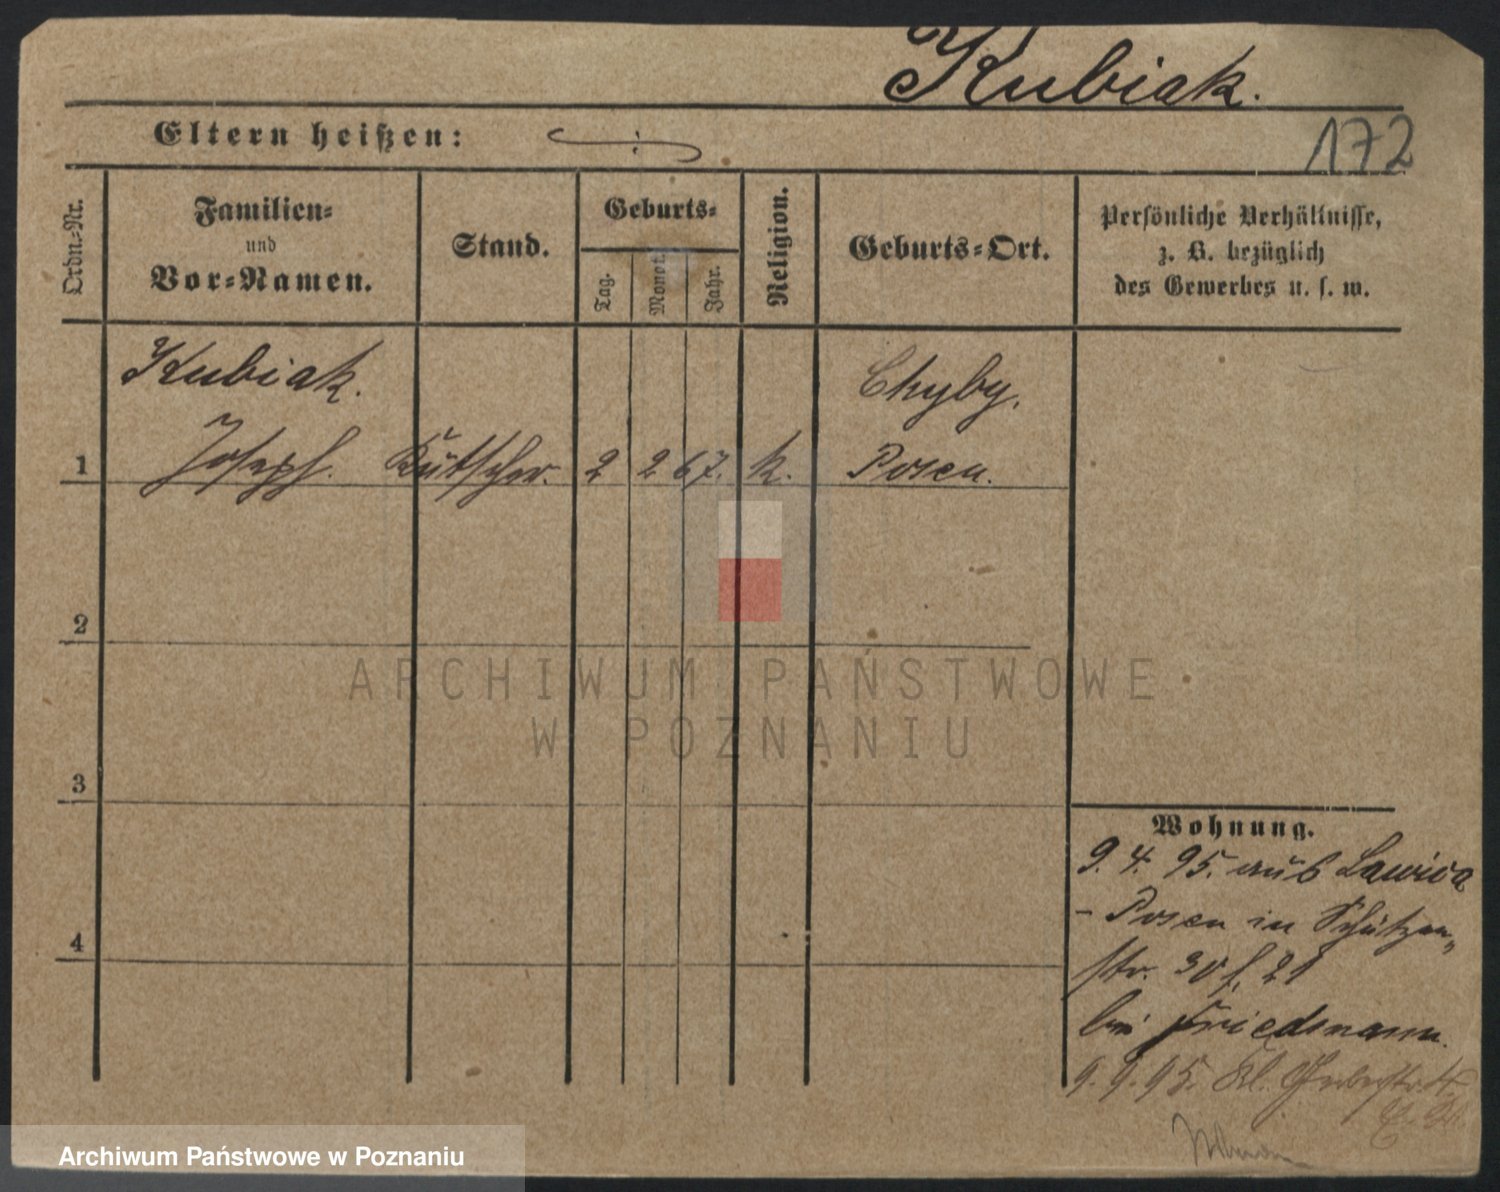 Kubiak.
Eltern heißen:
172
Ordn.-Nr.
Familien-
und
Vor-Namen.
Stand.
Geburts-
Tag.
Monat.
Jahr.
Religion.
Geburts-Ort.
Persönliche Verhältnisse,
z. B. bezüglich
des Gewerbes u. s. w.
Kubiak.
Chyby,
1 Joseph. Kutscher. 2 2 67. k. Posen.
2
ARCHIWUM PAŃSTWOWE
W POZNANIU
3
4
Wohnung.
9. 4. 95. aus Lawica
- Posen in Schützen-
str. 30 f. 21
bei Friedmann.
9. 9. 95. Kl. Gerberstr.
Archiwum Państwowe w Poznaniu